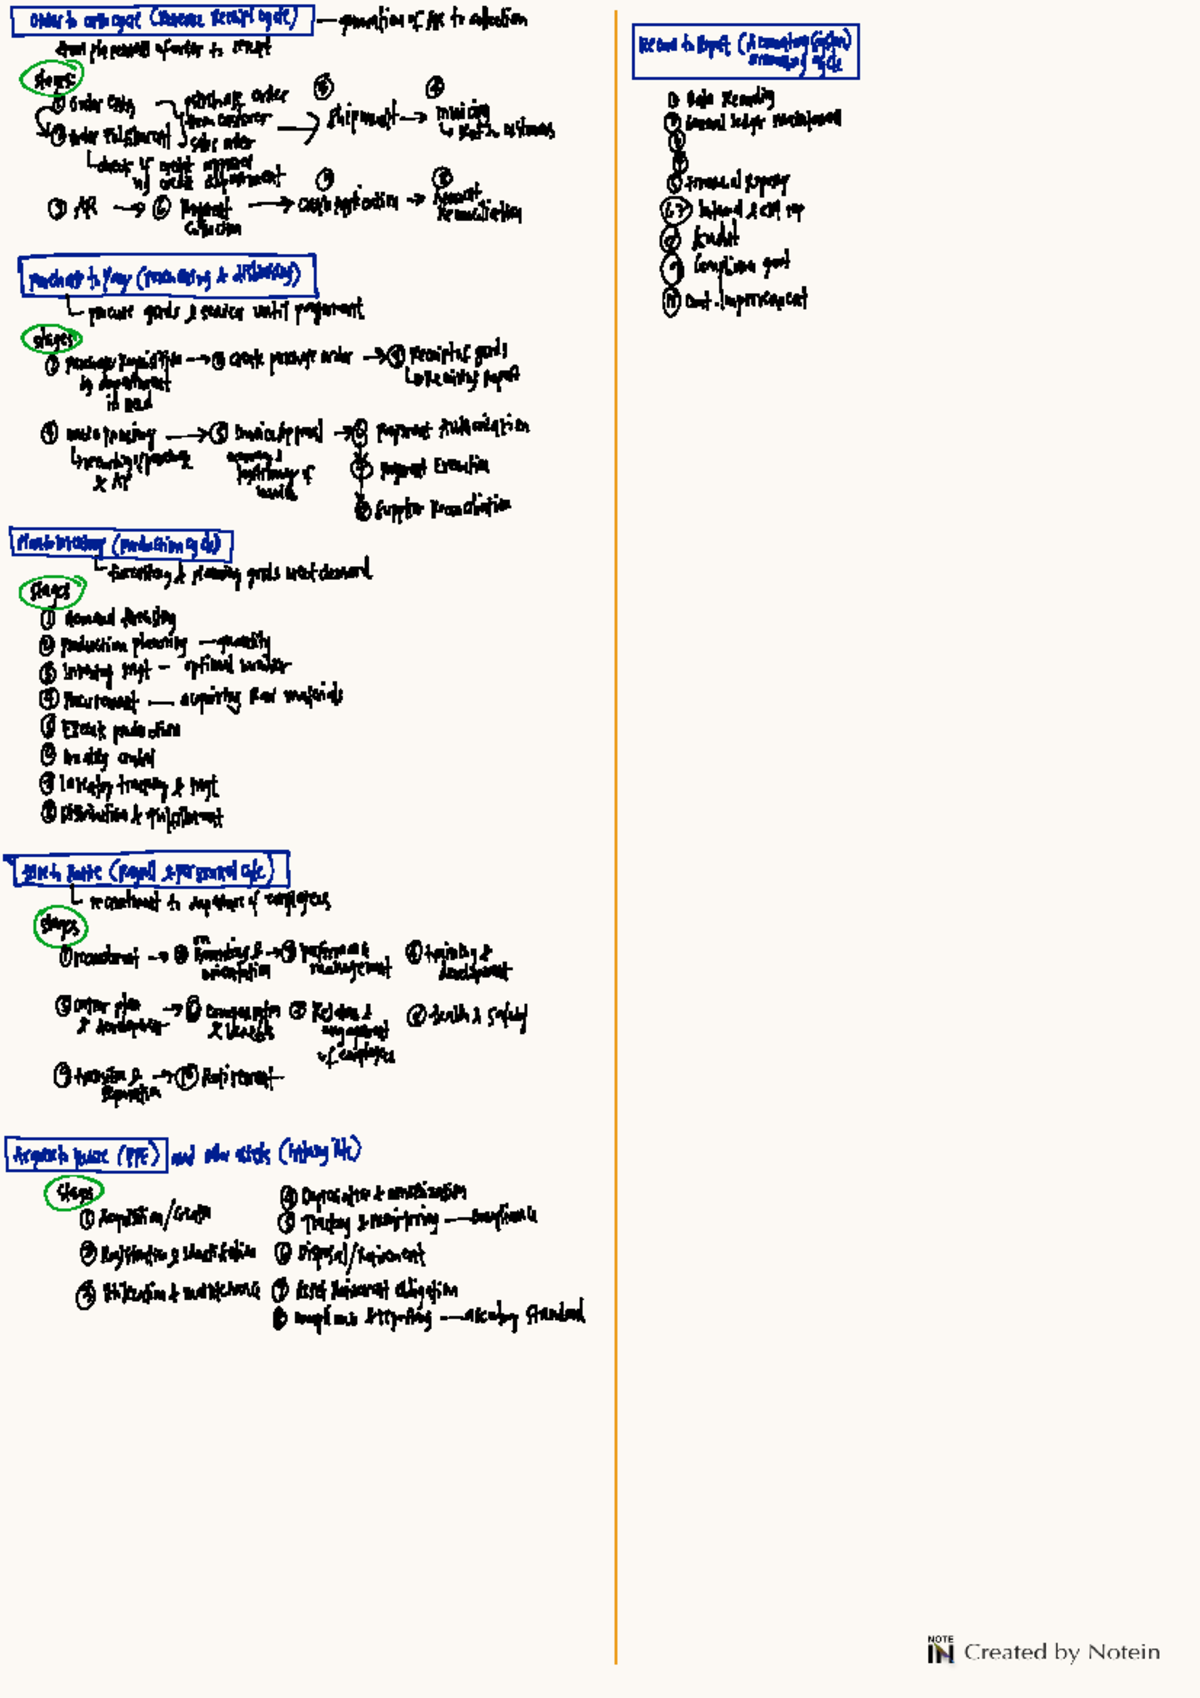 Order to cash cycle (Revenue Receipt cycle) — generation of AR to collection
from placement of order to receipt
stages:
① Order Entry — purchase order from customer
② Order Fulfillment sales order
check if credit approval by credit department
③ Shipment →
④ Invoicing
↳ Bill to customers
⑤ AR → ⑥ Payment Collection → ⑦ Cash Application → ⑧ Account Reconciliation
Purchase to Pay (purchasing & disbursing)
procure goods & service until payment
stages
① Purchase Requisition → ② create purchase order → ③ Receipt of goods
by department in need
↳ Receiving Report
④ → ⑤ Invoice Approval → ⑥ Payment Authorization
↳ recording of purchase & AP
accuracy & legitimacy of invoice
⑦ Payment Execution
⑧ Supplier Reconciliation
Plan to Inventory (production cycle)
forecasting & planning goods meet demand
stages
① demand forecasting
② production planning — quantity
③ Inventory mgt — optimal number
④ Procurement — acquiring Raw materials
⑤ Execute production
⑥ Quality control
⑦ Inventory tracking & mgt
⑧ Distribution & fulfillment
Hire to Retire (Payroll & personnel cycle)
recruitment to departure of employees
stages
① recruitment → ② on Boarding & orientation → ③ performance management
④ training & development
⑤ career plan & development → ⑥ Compensation & Benefits
⑦ Relation & engagement of employees
⑧ Health & Safety
⑨ transition & Separation → ⑩ Retirement
Acquire to Retire (PPE) and other assets (Intangible)
stages
① Acquisition/
② Registration & Identification
③ Utilization & maintenance
④ Depreciation & amortization
⑤ Tracking & monitoring — compliance
⑥ Disposal/Retirement
⑦ Asset Retirement obligation
⑧ compliance & reporting — accounting Standard
Record to Report (Accounting System)
accounting cycle
① Data Recording
② General ledger Maintenance
③
④
⑤ Financial Reporting
⑥⑦ Internal & External rep
⑧ Audit
⑨ Compliance govt
⑩ Cont. Improvement
NOTE IN Created by Notein